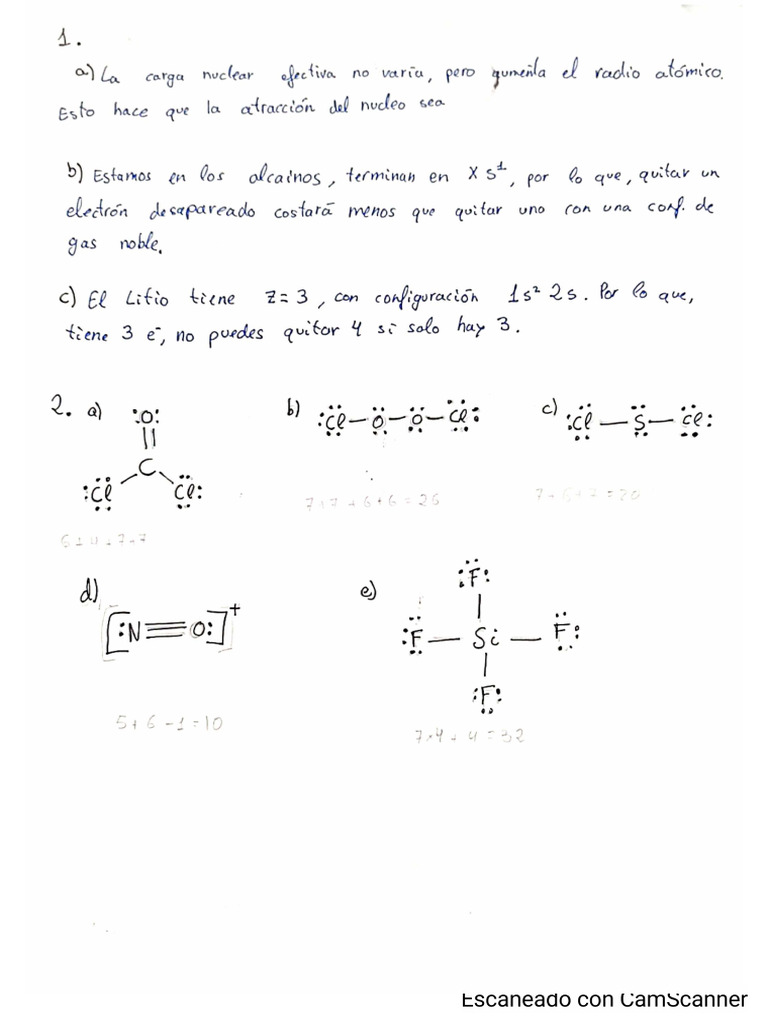 1.
a) La carga nuclear efectiva no varía, pero aumenta el radio atómico.
Esto hace que la atracción del nucleo sea
b) Estamos en los alcainos, terminan en X s¹, por lo que, quitar un
electrón desapareado costará menos que quitar uno con una conf. de
gas noble.
c) El Litio tiene Z=3, con configuración 1s² 2s. Por lo que,
tiene 3 e⁻, no puedes quitar 4 si solo hay 3.
2. a) :O:
C
:Cl Cl:
6+4+7+7
b) :Cl—O—O—Cl:
7+7+6+6=26
c) :Cl—S—Cl:
7+6+7=20
d)
[:N≡O:]⁺
5+6-1=10
e) :F:
:F—Si—F:
:F:
7·4+4=32
Escaneado con CamScanner